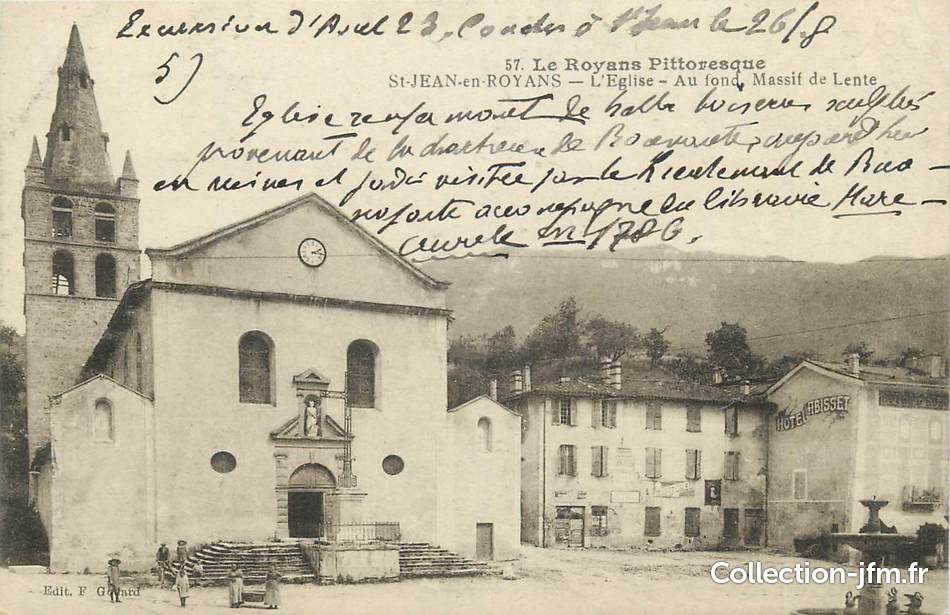 Excursion d'Aout 23. Coucher à St Jean le 26/8
5)
57. Le Royans Pittoresque
St-JEAN-en-ROYANS — L'Eglise - Au fond, Massif de Lente
Eglise renfermant de belles boiseries sculptées
provenant de la chartreuse de Bouvante, aujourd'hui
en ruines et jadis visitée par le Lieutenant de Buo-
naparte accompagné du libraire Marc-
Aurele en 1786.
HOTEL ABISSET
Edit. F Godard
Collection-jfm.fr